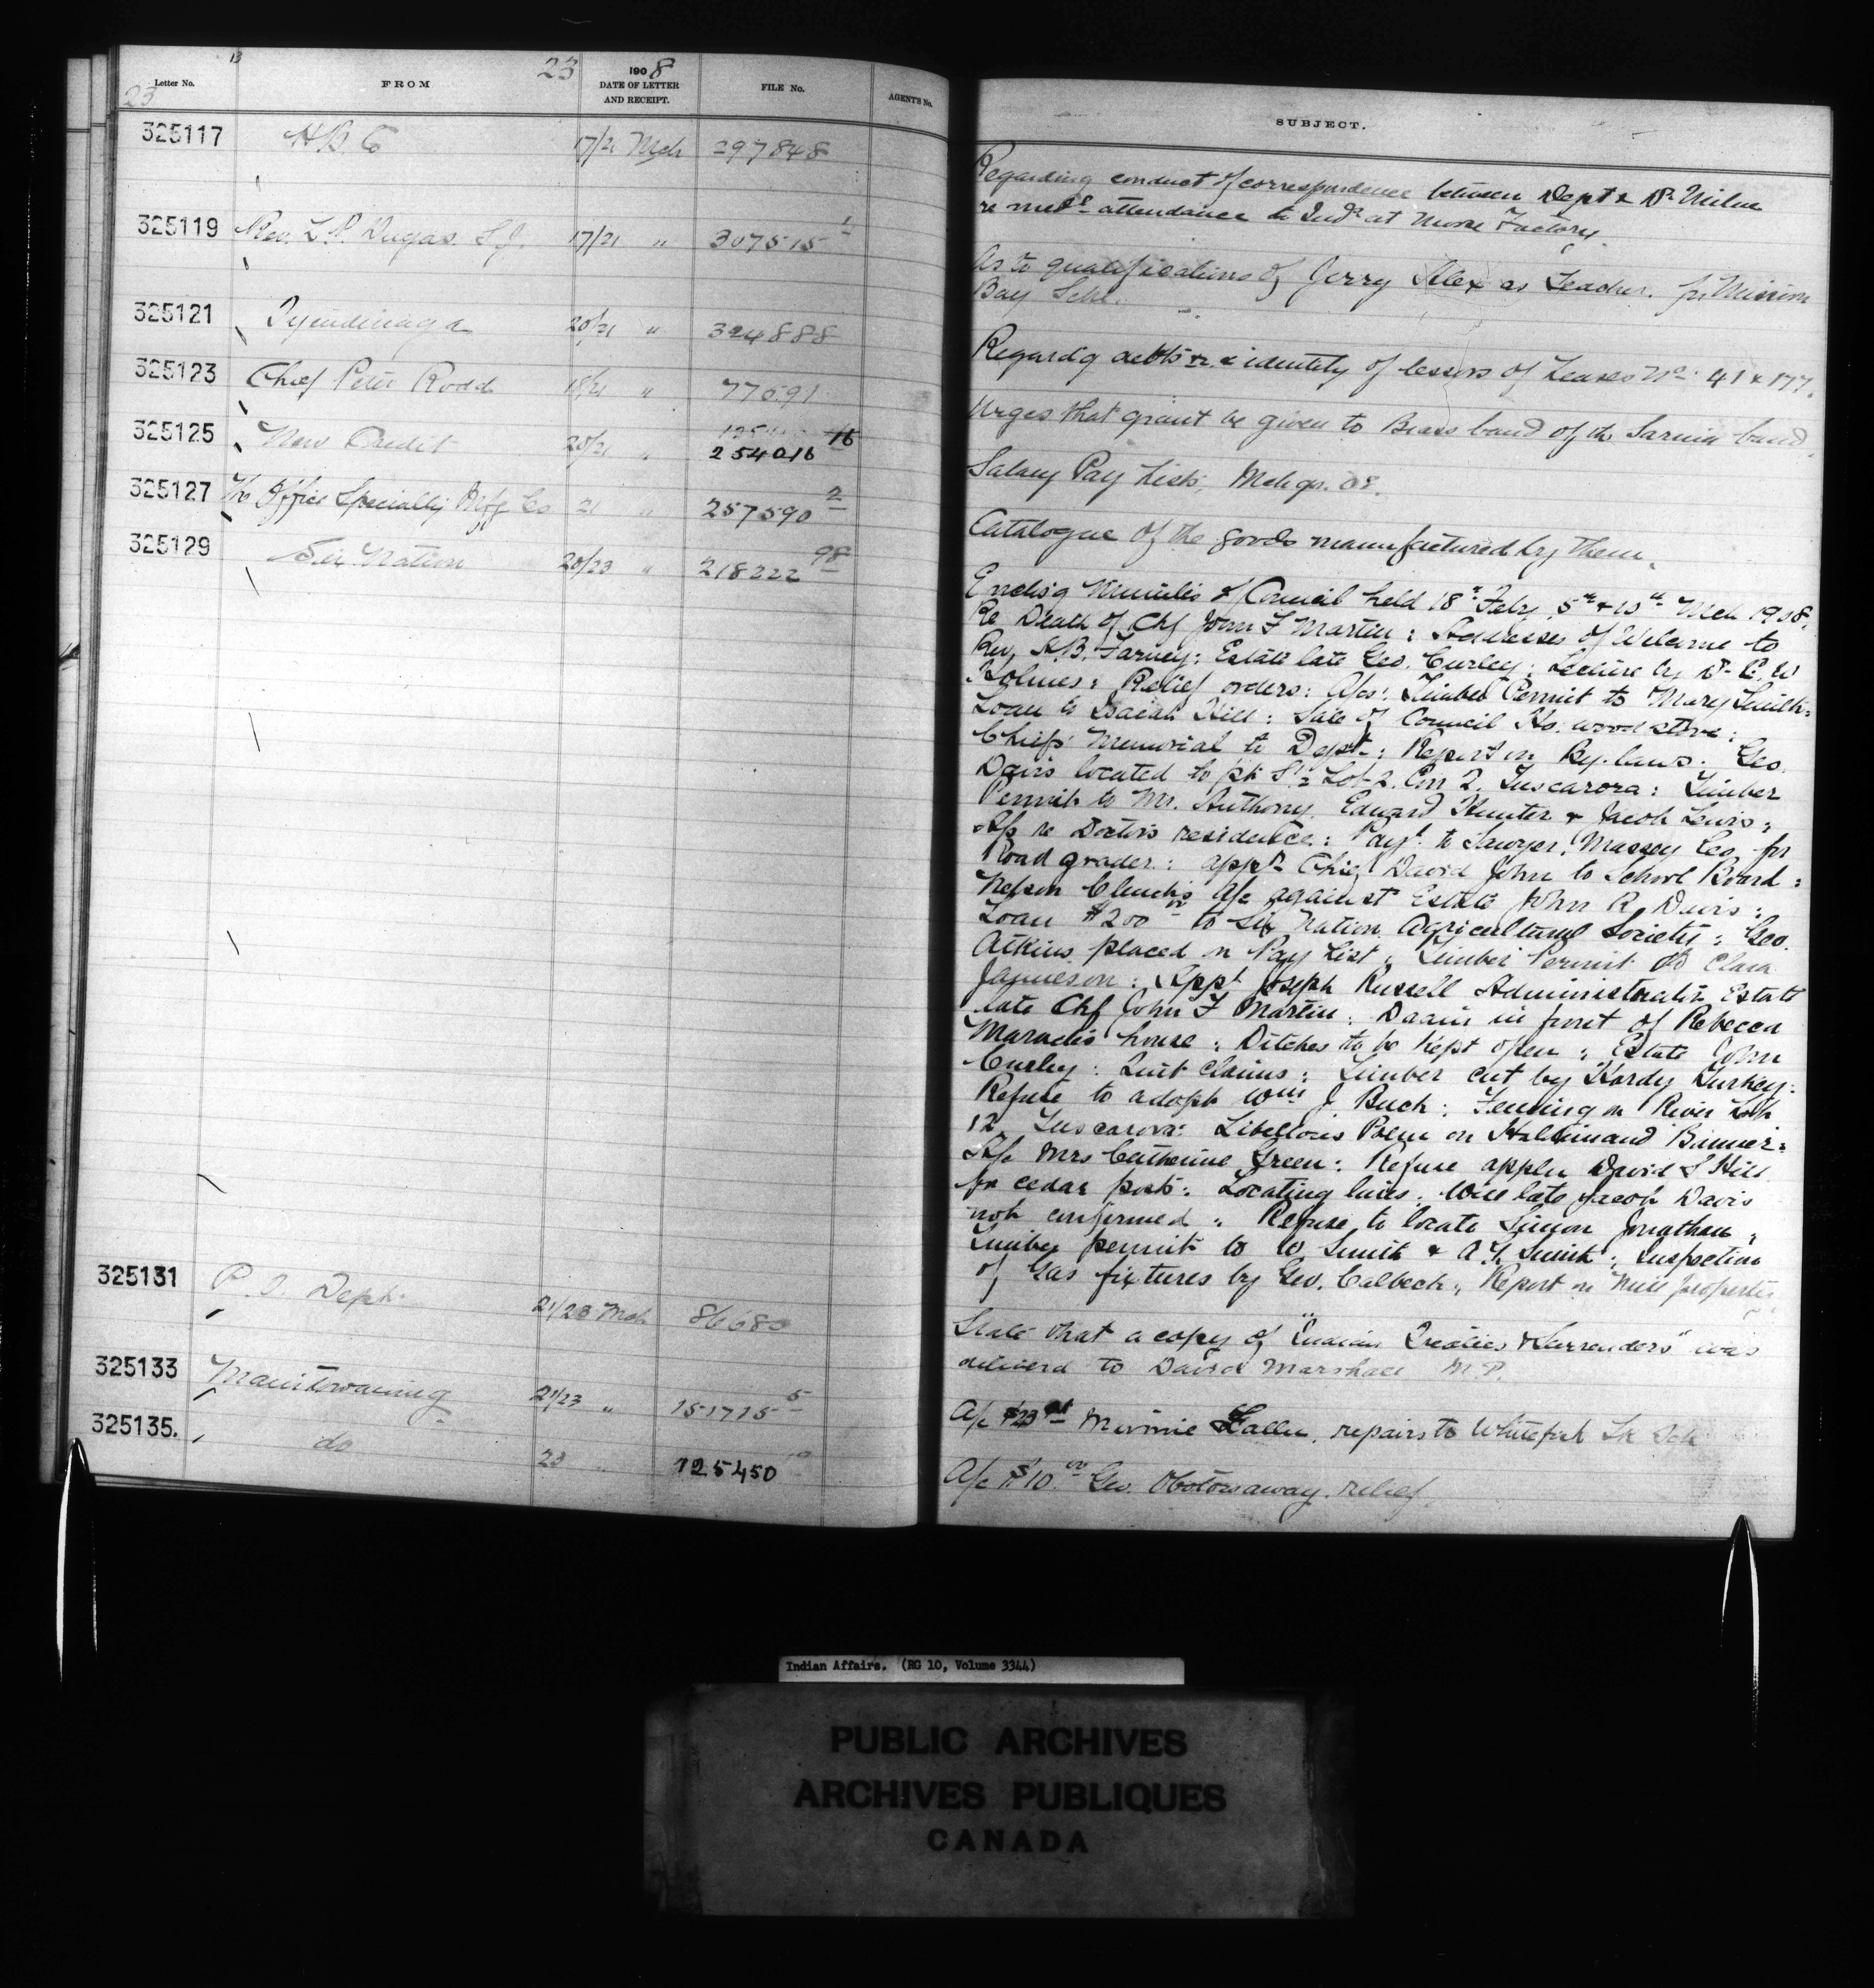 13
23
Letter No.
FROM
23
1908
DATE OF LETTER
AND RECEIPT.
FILE No.
AGENT'S No.
325117 H.B. Co 17/21 Mch 297848
325119 Rev. L.P. Dugas. S.J. 17/21 " 307515 1
325121 Tyendinaga 20/21 " 324888
325123 Chief Peter Rodd 18/21 " 77691
325125 New Credit 20/21 " 254016 16
325127 The Office Specialty Mfg Co 21 " 257590 2
325129 Six Nation 20/23 " 218222 98
325131 P. O. Dept. 21/23 Mch 86680
325133 Manitowaning 21/23 " 151715 5
325135. do 23 " 125450
SUBJECT.
Regarding conduct of correspondence between Dept & Dr Milne
re medl attendance to Inds at Moose Factory.
As to qualifications of Jerry Alex as Teacher. for Mission
Bay Schl.
Regardg debts & identity of lessors of Leases No. 41 & 177.
Urges that grant be given to Brass band of the Sarnia band
Salary Pay Lists, Mch qr. 08.
Catalogue of the goods manufactured by them.
Enclsg Minutes of Council held 18th Feby, 5th & 10th Mch 1908.
Re Death of Chf John F Martin: Addresses of Welcome to
Rev, H.B. Farney: Estate late Geo. Curley: Lecture by Dr E. W
Holmes: Relief orders: A/cs: Timber Permit to Mary Smith:
Loan to Isaiah Hill: Sale of Council Ho. wood stove:
Chiefs Memorial to Dept.: Report on By-laws. Geo.
Davis located to pt S½ Lot 2. Con 2. Tuscarora: Timber
Permits to Mr. Anthony, Edward Hunter & Jacob Lewis:
A/c re Doctors residence: Payt to Sawyer, Massey Co. for
Road grader: appt Chief David John to School Board:
Nelson Clench's A/c against Estate John R. Davis:
Loan $200 00 to Six Nation Agricultural Society: Geo.
Atkins placed on Pay List: Timber Permit to Clara
Jamieson: Appt Joseph Russell Administrator Estate
late Chf John F Martin: Drain in front of Rebecca
Maracle's house: Ditches to be kept open: Estate John
Curley: Quit Claims: Timber cut by Hardy Turkey:
Refuse to adopt Wm J Buch: Fencing on River Lot
12, Tuscarora: Libellous Poem on Haldimand Banner:
A/c Mrs Catherine Green: Refuse appln David S Hill
for cedar posts: Locating lines: Will late Jacob Davis
not confirmed: Refuse to locate Simon Jonathan:
Timber permit to W Smith & A.G. Smith: Inspection
of Gas fixtures by Geo. Calbeck: Report on Mill property
State that a copy of "Indian Treaties & Surrenders" was
delivered to David Marshall M.P.
A/c $23 Minnie repairs to Whitefish Lk Schl
A/c $10 00 Geo. Obotossaway. relief.
Indian Affairs. (RG 10, Volume 3344)
PUBLIC ARCHIVES
ARCHIVES PUBLIQUES
CANADA